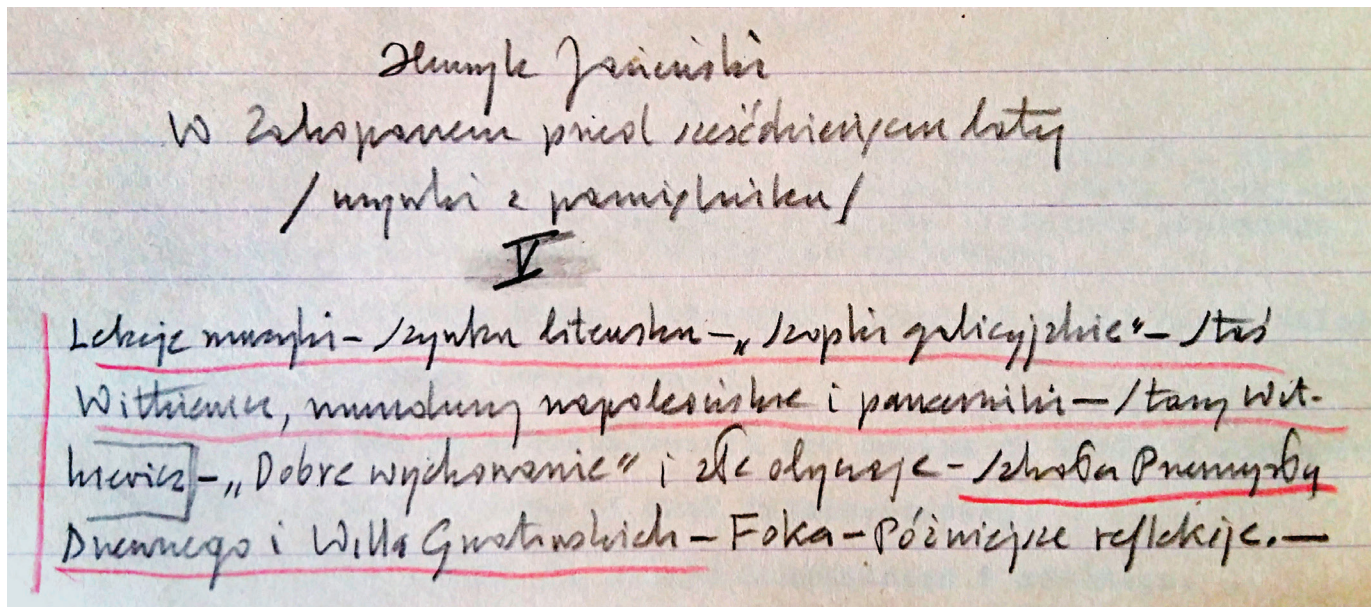 Henryk Jasieński
W Zakopanem przed sześćdziesięciu laty
/urywki z pamiętnika/
V
Lekcje muzyki – szynka litewska – „szopki galicyjskie" – Staś
Witkiewicz, mundury napoleońskie i pancerniki – Stary Wit-
kiewicz – „Dobre wychowanie" i złe obyczaje – Szkoła Przemysłu
Drzewnego i Willa Gnatowskich – Foka – Późniejsze refleksje. –